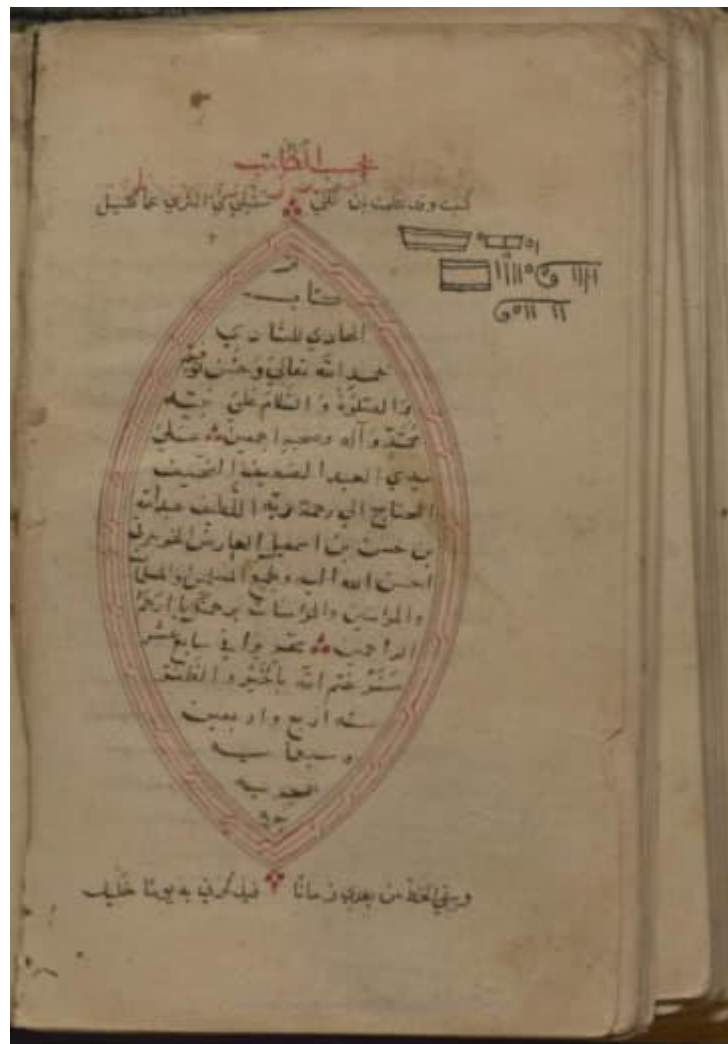 كتبت وقد علمت بان كفي ستبلى في الثرى عما قليل
تم
كتاب
الحاوي للفتاوي
بحمد الله تعالي وحسن توفيقه
والصلوة والسلام علي نبيه
محمد وآله وصحبه اجمعين علي
يدي العبد الضعيف النحيف
المحتاج الي رحمة ربه اللطيف عبدالله
بن حسن بن اسمعيل
احسن الله اليه ولجميع المسلمين والمسلمات
والمؤمنين والمؤمنات برحمتك يا ارحم
الراحمين في سابع عشر
ختم الله بالخير والظفر
سنه اربع واربعين
وسبعمايه
هجريه
ويبقي الخط من بعدي زمانا فيذكرني به يوما خليل